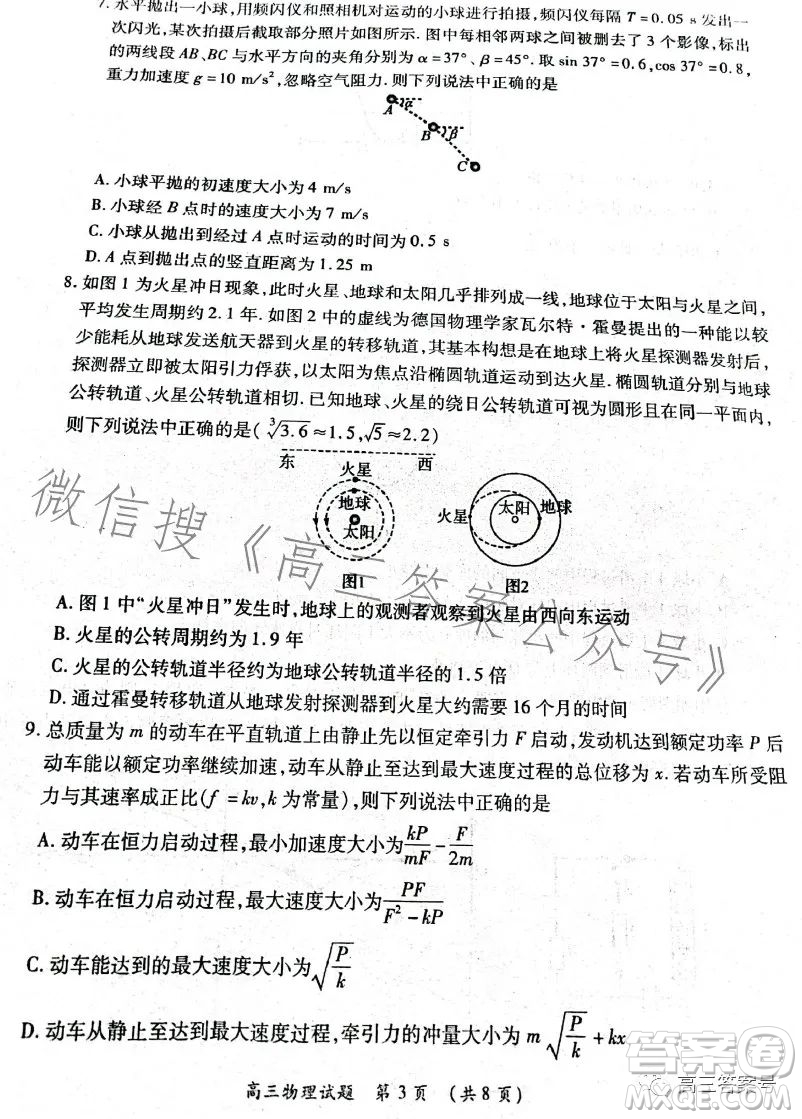 7. 水平抛出一小球，用频闪仪和照相机对运动的小球进行拍摄，频闪仪每隔 T=0.05 s 发出一
次闪光，某次拍摄后截取部分照片如图所示. 图中每相邻两球之间被删去了 3 个影像，标出
的两线段 AB、BC 与水平方向的夹角分别为 α=37°、β=45°. 取 sin 37°=0.6,cos 37°=0.8,
重力加速度 g=10 m/s²,忽略空气阻力. 则下列说法中正确的是
A
α
B
β
C
A. 小球平抛的初速度大小为 4 m/s
B. 小球经 B 点时的速度大小为 7 m/s
C. 小球从抛出到经过 A 点时运动的时间为 0.5 s
D. A 点到抛出点的竖直距离为 1.25 m
8. 如图 1 为火星冲日现象，此时火星、地球和太阳几乎排列成一线，地球位于太阳与火星之间，
平均发生周期约 2.1 年. 如图 2 中的虚线为德国物理学家瓦尔特·霍曼提出的一种能以较
少能耗从地球发送航天器到火星的转移轨道，其基本构想是在地球上将火星探测器发射后，
探测器已被太阳引力俘获，以太阳为焦点沿椭圆轨道运动到达火星. 椭圆轨道分别与地球
公转轨道、火星公转轨道相切. 已知地球、火星的绕日公转轨道可视为圆形且在同一平面内，
则下列说法中正确的是(∛3.6≈1.5,√5≈2.2)
东 火星 西
地球
太阳
图1
火星 太阳 地球
图2
A. 图 1 中“火星冲日”发生时，地球上的观测者观察到火星由西向东运动
B. 火星的公转周期约为 1.9 年
C. 火星公转轨道半径约为地球公转轨道半径的 1.5 倍
D. 通过霍曼转移轨道从地球发射探测器到火星大约需要 16 个月的时间
9. 总质量为 m 的动车在平直轨道上由静止先以恒定牵引力 F 启动，发动机达到额定功率 P 后
动车能以额定功率继续加速，动车从静止至达到最大速度过程的总位移为 x. 若动车所受阻
力与其速率成正比(f=kv,k 为常量)，则下列说法中正确的是
A. 动车在恒力启动过程，最小加速度大小为 kP/mF − F/2m
B. 动车在恒力启动过程，最大速度大小为 PF/(F²−kP)
C. 动车能达到的最大速度大小为 √(P/k)
D. 动车从静止至达到最大速度过程，牵引力的冲量大小为 m√(P/k)+kx
高三物理试题 第 3 页 （共 8 页）
微信搜《高三答案公众号》
答案圈
MXQE.COM
高三答案号